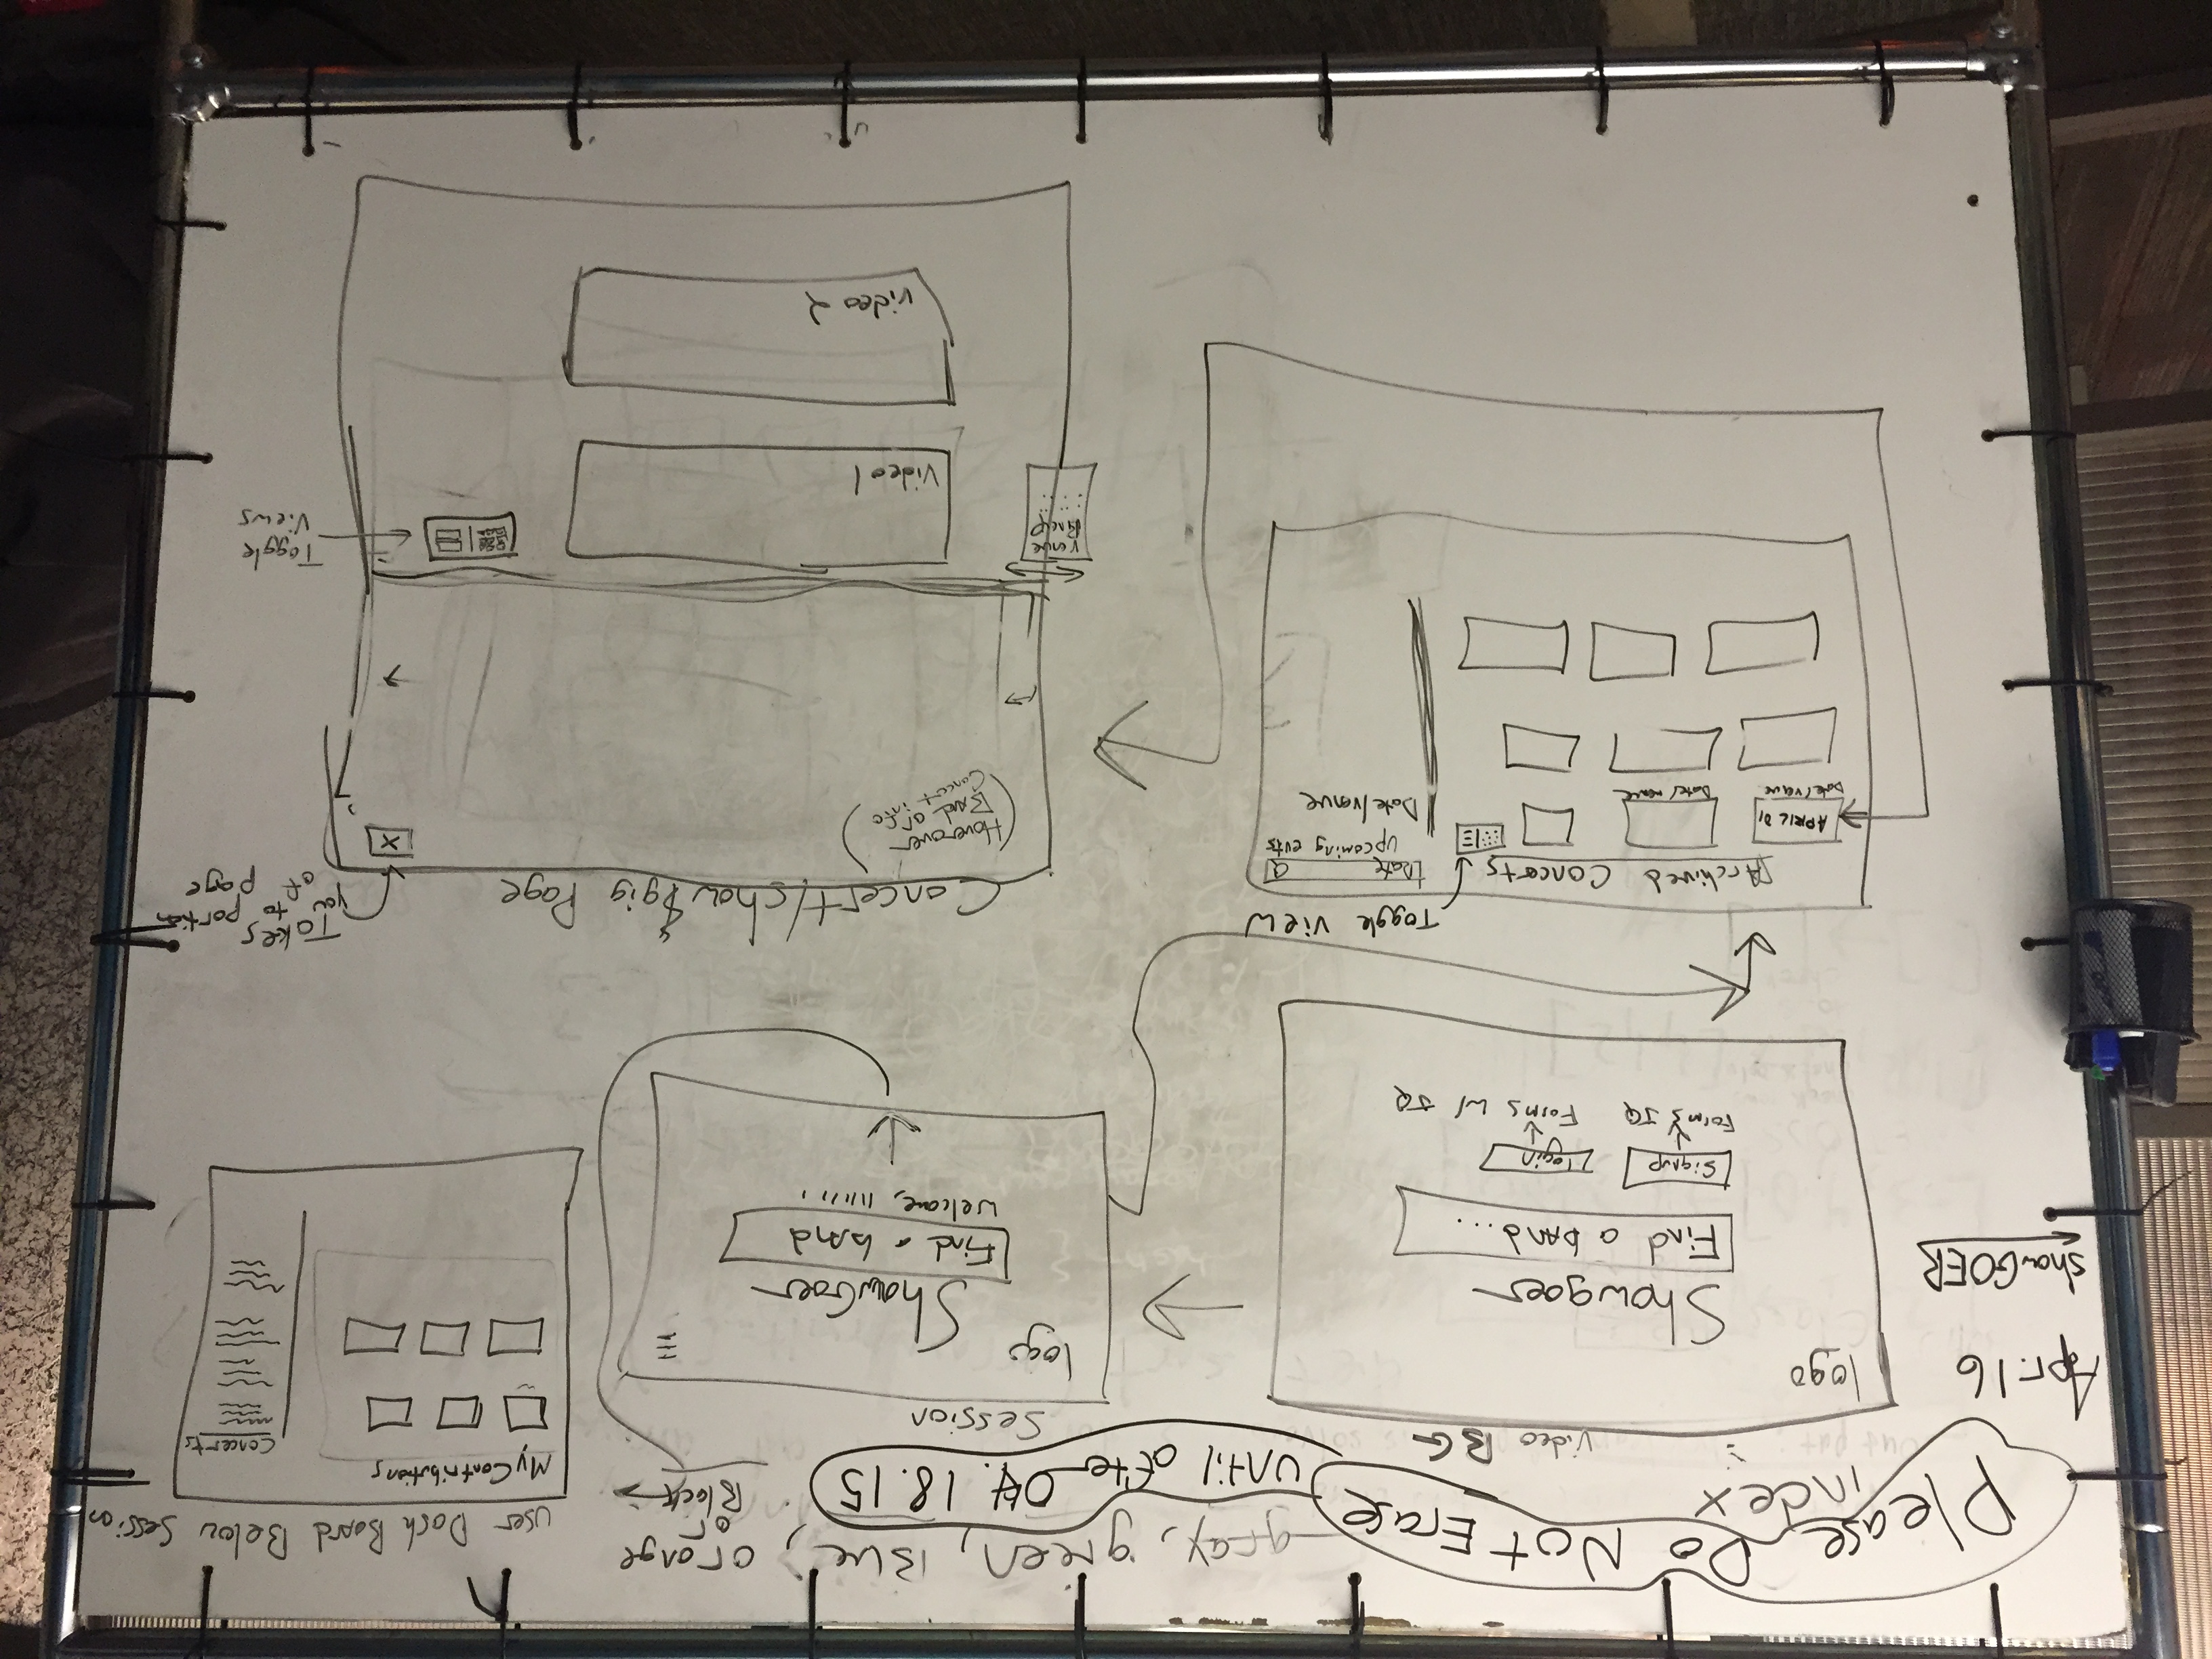 Please Do Not Erase
until after 04.18.15
gray, green, Blue, orange
or
Black
index
Video BG
Apr. 16
showGOER
logo
Showgoer
Find a bAnd...
Signup
login
Forms JQ
Forms w/ JQ
Session
logo
ShowGoer
Find a bAnd
Welcome,
User DashBoard Below Session
My Contributions
Concerts
Toggle View
Archived Concerts
Date
upcoming evts
APRIL 01
Date/venue
Date/venue
Date/venue
Concert/show & gig Page
Takes
you to portion
of page
(Hoverover
Band or
Concert info)
X
Venue
Toggle
Views
Video 1
video 2